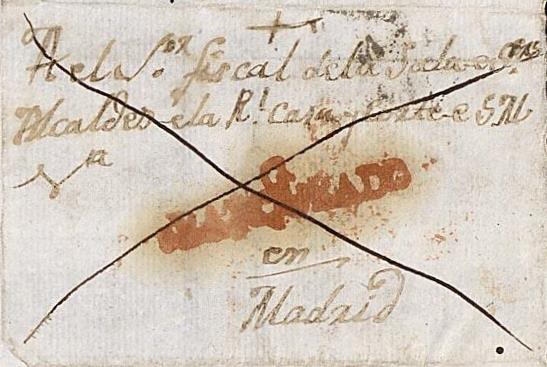 +
Al el S.or fiscal de la Sala de SS.res
Alcaldes de la R.l casa y Corte de S M
V a
FRANQUEADO
en
Madrid